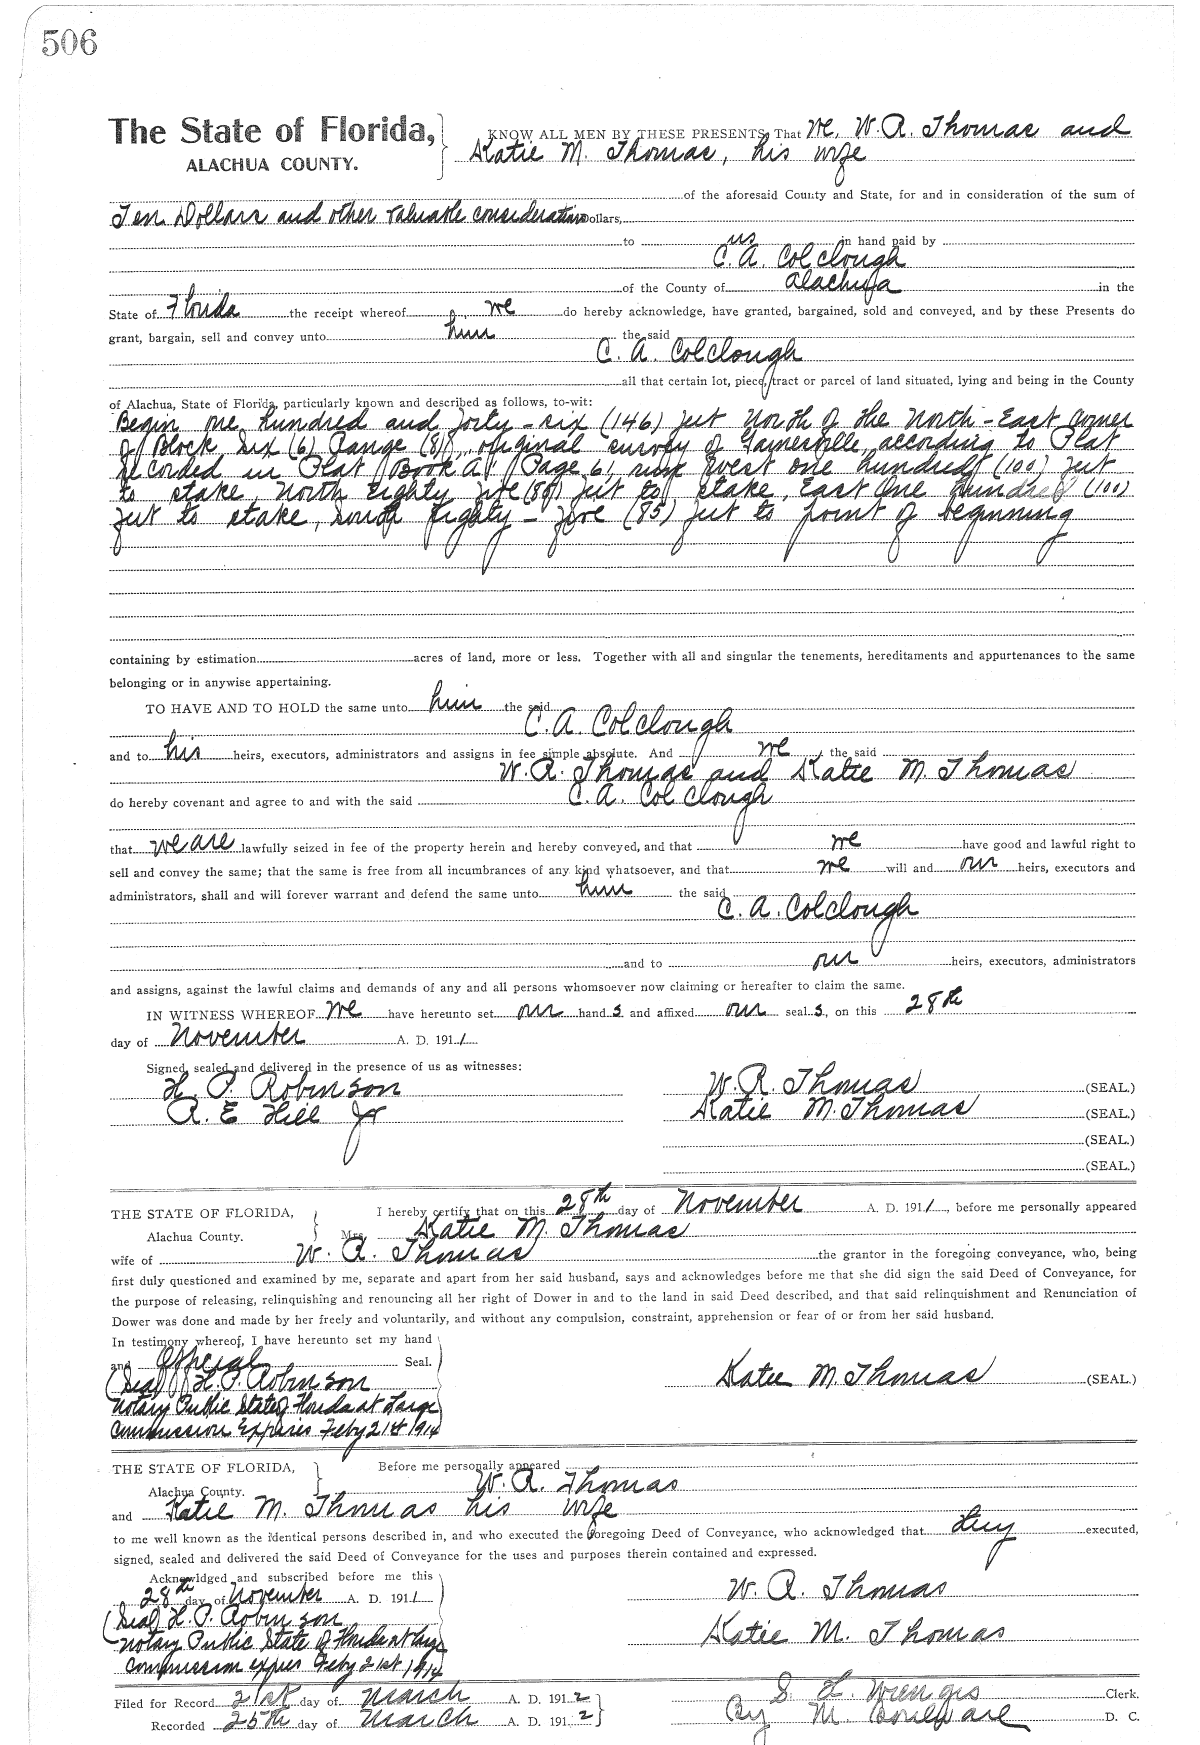 506
The State of Florida,
ALACHUA COUNTY.
KNOW ALL MEN BY THESE PRESENTS, That We, W. R. Thomas and
Katie M. Thomas, his wife
of the aforesaid County and State, for and in consideration of the sum of
Ten Dollars and other valuable consideration Dollars,
to us in hand paid by
C. A. Colclough
of the County of Alachua in the
State of Florida the receipt whereof we do hereby acknowledge, have granted, bargained, sold and conveyed, and by these Presents do
grant, bargain, sell and convey unto him the said
C. A. Colclough
all that certain lot, piece, tract or parcel of land situated, lying and being in the County
of Alachua, State of Florida, particularly known and described as follows, to-wit:
Begin one hundred and forty-six (146) feet North of the North-East corner
of Block Six (6) Range (8), original survey of Gainesville, according to Plat
recorded in Plat Book A, Page 6, run West one hundred (100) feet
to stake, North Eighty five (85) feet to stake, East One hundred (100)
feet to stake, South Eighty-five (85) feet to point of beginning
containing by estimation acres of land, more or less. Together with all and singular the tenements, hereditaments and appurtenances to the same
belonging or in anywise appertaining.
TO HAVE AND TO HOLD the same unto him the said
C. A. Colclough
and to his heirs, executors, administrators and assigns in fee simple absolute. And we, the said
W. R. Thomas and Katie M. Thomas
do hereby covenant and agree to and with the said C. A. Colclough
that we are lawfully seized in fee of the property herein and hereby conveyed, and that we have good and lawful right to
sell and convey the same; that the same is free from all incumbrances of any kind whatsoever, and that we will and our heirs, executors and
administrators, shall and will forever warrant and defend the same unto him the said
C. A. Colclough
and to our heirs, executors, administrators
and assigns, against the lawful claims and demands of any and all persons whomsoever now claiming or hereafter to claim the same.
IN WITNESS WHEREOF We have hereunto set our hand s and affixed our seal s, on this 28th
day of November A. D. 1911.
Signed, sealed and delivered in the presence of us as witnesses:
H. P. Robinson
R. E Hill Jr
W. R. Thomas (SEAL.)
Katie M. Thomas (SEAL.)
(SEAL.)
(SEAL.)
THE STATE OF FLORIDA,
Alachua County.
I hereby certify that on this 28th day of November A. D. 1911, before me personally appeared
Mrs. Katie M. Thomas
wife of W. R. Thomas the grantor in the foregoing conveyance, who, being
first duly questioned and examined by me, separate and apart from her said husband, says and acknowledges before me that she did sign the said Deed of Conveyance, for
the purpose of releasing, relinquishing and renouncing all her right of Dower in and to the land in said Deed described, and that said relinquishment and Renunciation of
Dower was done and made by her freely and voluntarily, and without any compulsion, constraint, apprehension or fear of or from her said husband.
In testimony whereof, I have hereunto set my hand
and Official Seal.
(Seal) H. P. Robinson
Notary Public State of Florida at Large
Commission Expires Feby 21st 1914
Katie M. Thomas (SEAL.)
THE STATE OF FLORIDA,
Alachua County.
Before me personally appeared
W. R. Thomas
and Katie M. Thomas his wife
to me well known as the identical persons described in, and who executed the foregoing Deed of Conveyance, who acknowledged that they executed,
signed, sealed and delivered the said Deed of Conveyance for the uses and purposes therein contained and expressed.
Acknowledged and subscribed before me this
28th day of November A. D. 1911
(Seal) H. P. Robinson
Notary Public State of Florida at Large
Commission expires Feby 21st 1914
W. R. Thomas
Katie M. Thomas
Filed for Record 21st day of March A. D. 1912
Recorded 25th day of March A. D. 1912
S. H. Wienges Clerk.
By M. D. C.